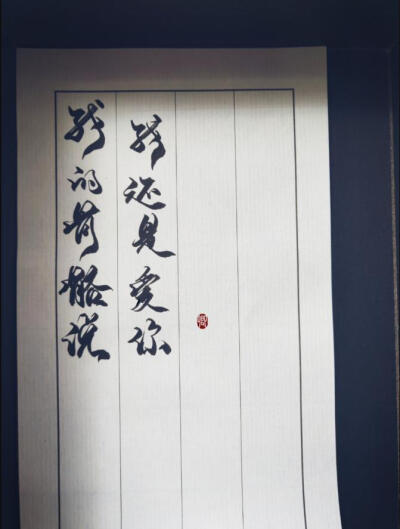 我的骨骼说
我还是爱你